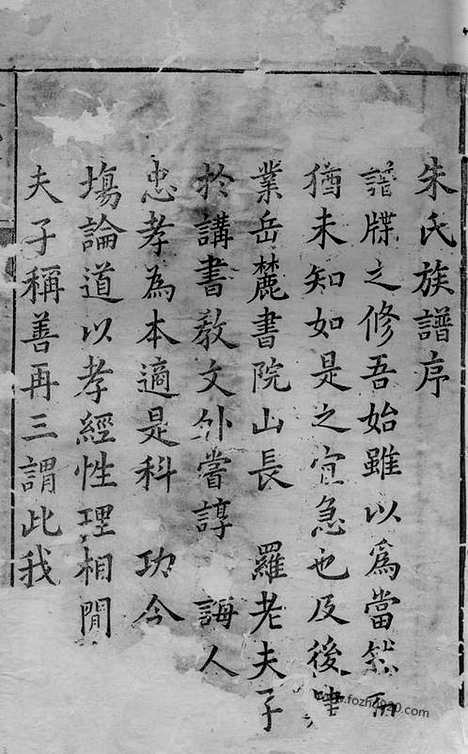 朱氏族譜序
譜牒之修吾始雖以為當然而
猶未知如是之宜急也及後肄
業岳麓書院山長 羅老夫子
於講書教文外嘗諄 誨人
忠孝為本適是科 功令
塲論道以孝經性理相間
夫子稱善再三謂此我
www.fozhu920.com